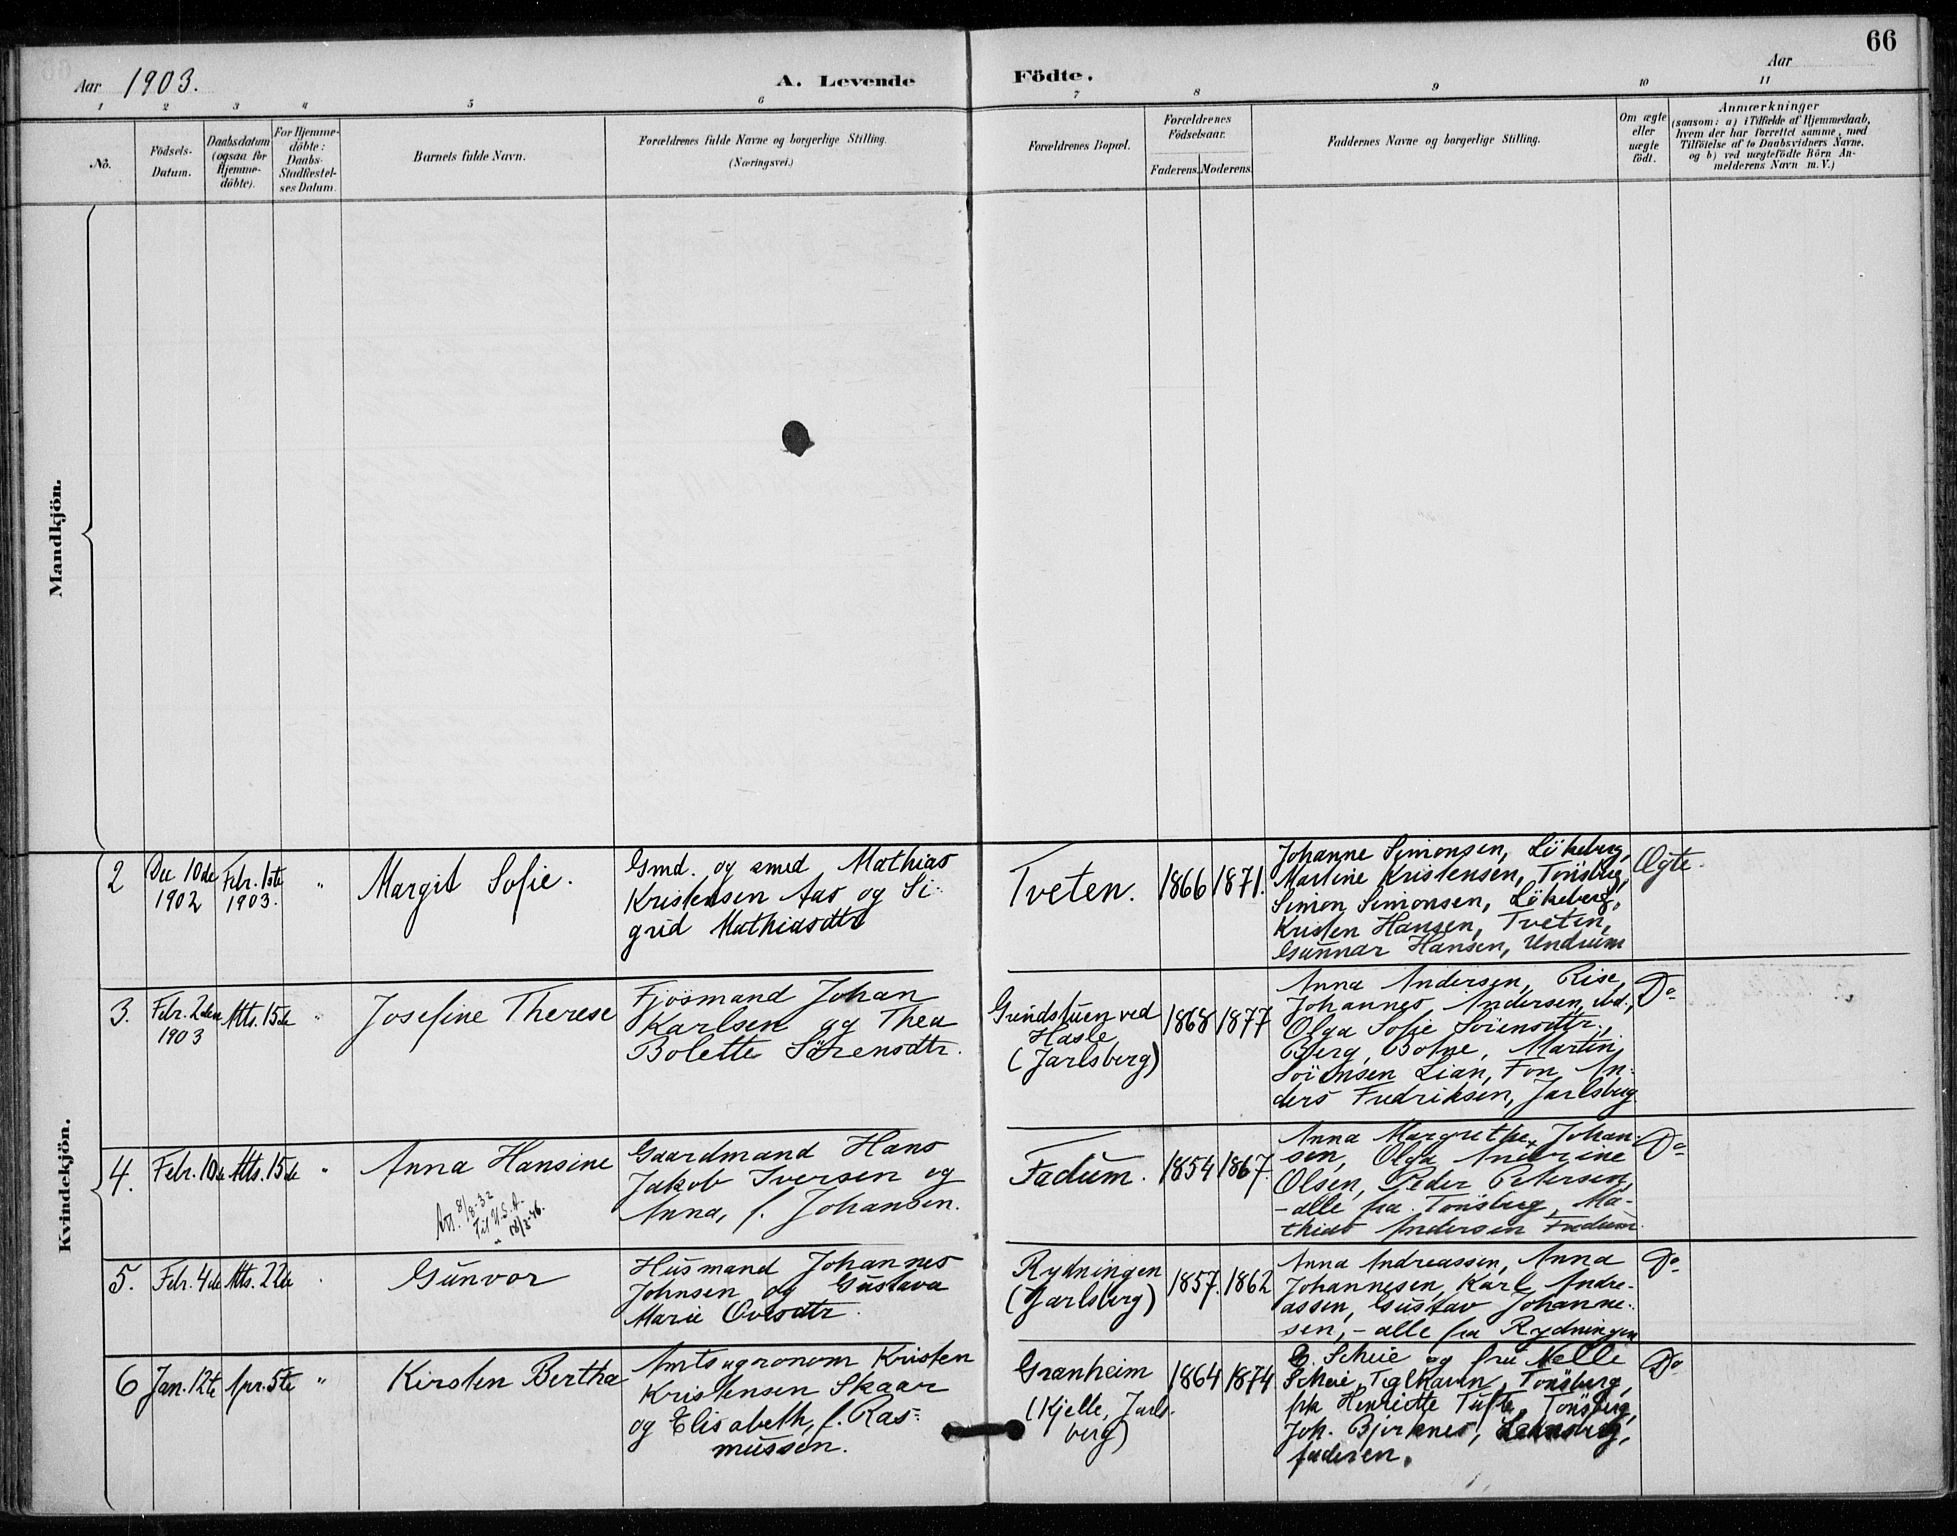 66
Aar 1903.
A. Levende
Födte.
Aar
1 2 3 4 5 6 7 8 9 10 11
No.
Födsels-
Datum.
Daabsdatum
(ogsaa for
Hjemme-
döbte).
For Hjemme-
döbte:
Daabs-
Stadfæstel-
ses Datum.
Barnets fulde Navn.
Forældrenes fulde Navne og borgerlige Stilling.
(Næringsvei.)
Forældrenes Bopæl.
Forældrenes
Födselsaar.
Faderens. Moderens.
Faddernes Navne og borgerlige Stilling.
Om ægte
eller
uægte
födt.
Anmærkninger
(saasom: a) i Tilfælde af Hjemmedaab,
hvem der har forrettet samme, med
Tilföielse af to Daabsvidners Navne,
og b) ved uægtefödte Börn An-
melderens Navn m. V.)
Mandkjön.
Kvindekjön.
2
Dec 10de
1902
Febr. 1ste
1903.
"
Margit Sofie.
Gmd. og smed Mathias
Kristensen Aas og Si-
grid Mathiasdtr
Tveten.
1866
1871.
Johanne Simonsen, Lökeberg,
Martine Kristensen, Tönsberg,
Simon Simonsen, Lökeberg,
Kristen Hansen, Tveten,
Gunnar Hansen, Undrum
Ægte.
3.
Febr. 2den
1903
Mts. 15de
"
Josefine Therese
Fjösmand Johan
Karlsen og Thea
Bolette Sörensdtr.
Grindstuen ved
Hasle
(Jarlsberg)
1868
1877
Anna Andersen, Rise,
Johannes Andersen, ibd.,
Olga Sofie Sörensdtr.,
Berg, Botne, Martin
Sörensen Lian, Fon, An-
ders Fredriksen, Jarlsberg
Do
4.
Febr. 10de
Mts. 15de
"
Anna Hansine
8/8-32
Til U.S.A.
Gaardmand Hans
Jakob Iversen og
Anna, f. Johansen.
Fadum.
1854
1867.
Anna Margrethe Johan-
sen, Olga Andrine
Olsen, Peder Petersen,
- alle fra Tönsberg, Ma-
thias Andersen Fadum.
Do
5.
Febr. 4de
Mts. 22de
Gunvor
Husmand Johannes
Johnsen og Gustava
Marie Ovesdtr.
Rydningen
(Jarlsberg)
1857.
1862
Anna Andreassen, Anna
Johannesen, Karl Andre-
assen, Gustav Johanne-
sen, - alle fra Rydningen
Do
6
Jan. 12te
Apr. 5te
"
Kirsten Bertha
Amtsagronom Kristen
Kristensen Skaar
og Elisabeth, f. Ras-
mussen.
Granheim
(Kjelle, Jarls-
berg)
1864
1874
Scheie og fru Nelle
Scheie, Teglhavn, Tönsberg,
frk Henriette Tufte, Tönsberg,
Joh. Björknes,
faderen.
Do